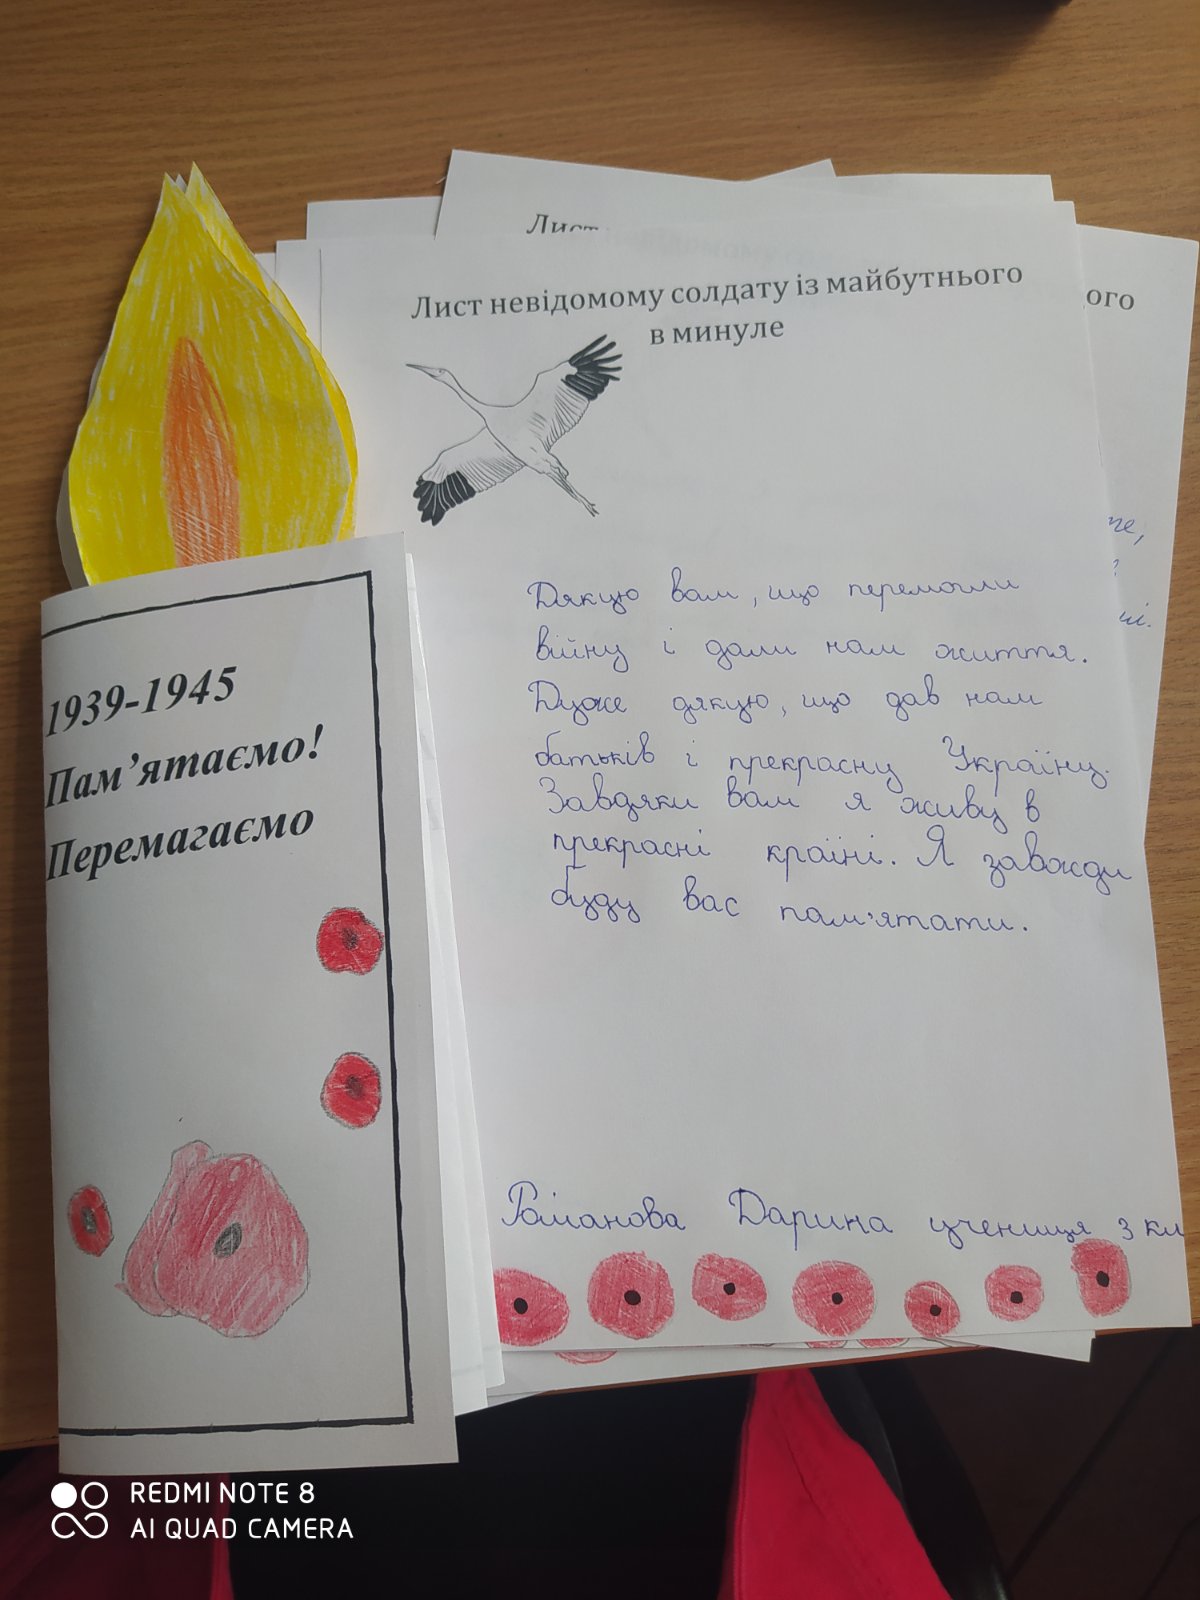 Лист
ого
Лист невідомому солдату із майбутнього
в минуле
Дякую вам, що перемогли
війну і дали нам життя.
Дуже дякую, що дав нам
батьків і прекрасну Україну.
Завдяки вам я живу в
прекрасні країні. Я завжди
буду вас пам'ятати.
Романова Дарина учениця 3 кл
1939-1945
Пам'ятаємо!
Перемагаємо
REDMI NOTE 8
AI QUAD CAMERA